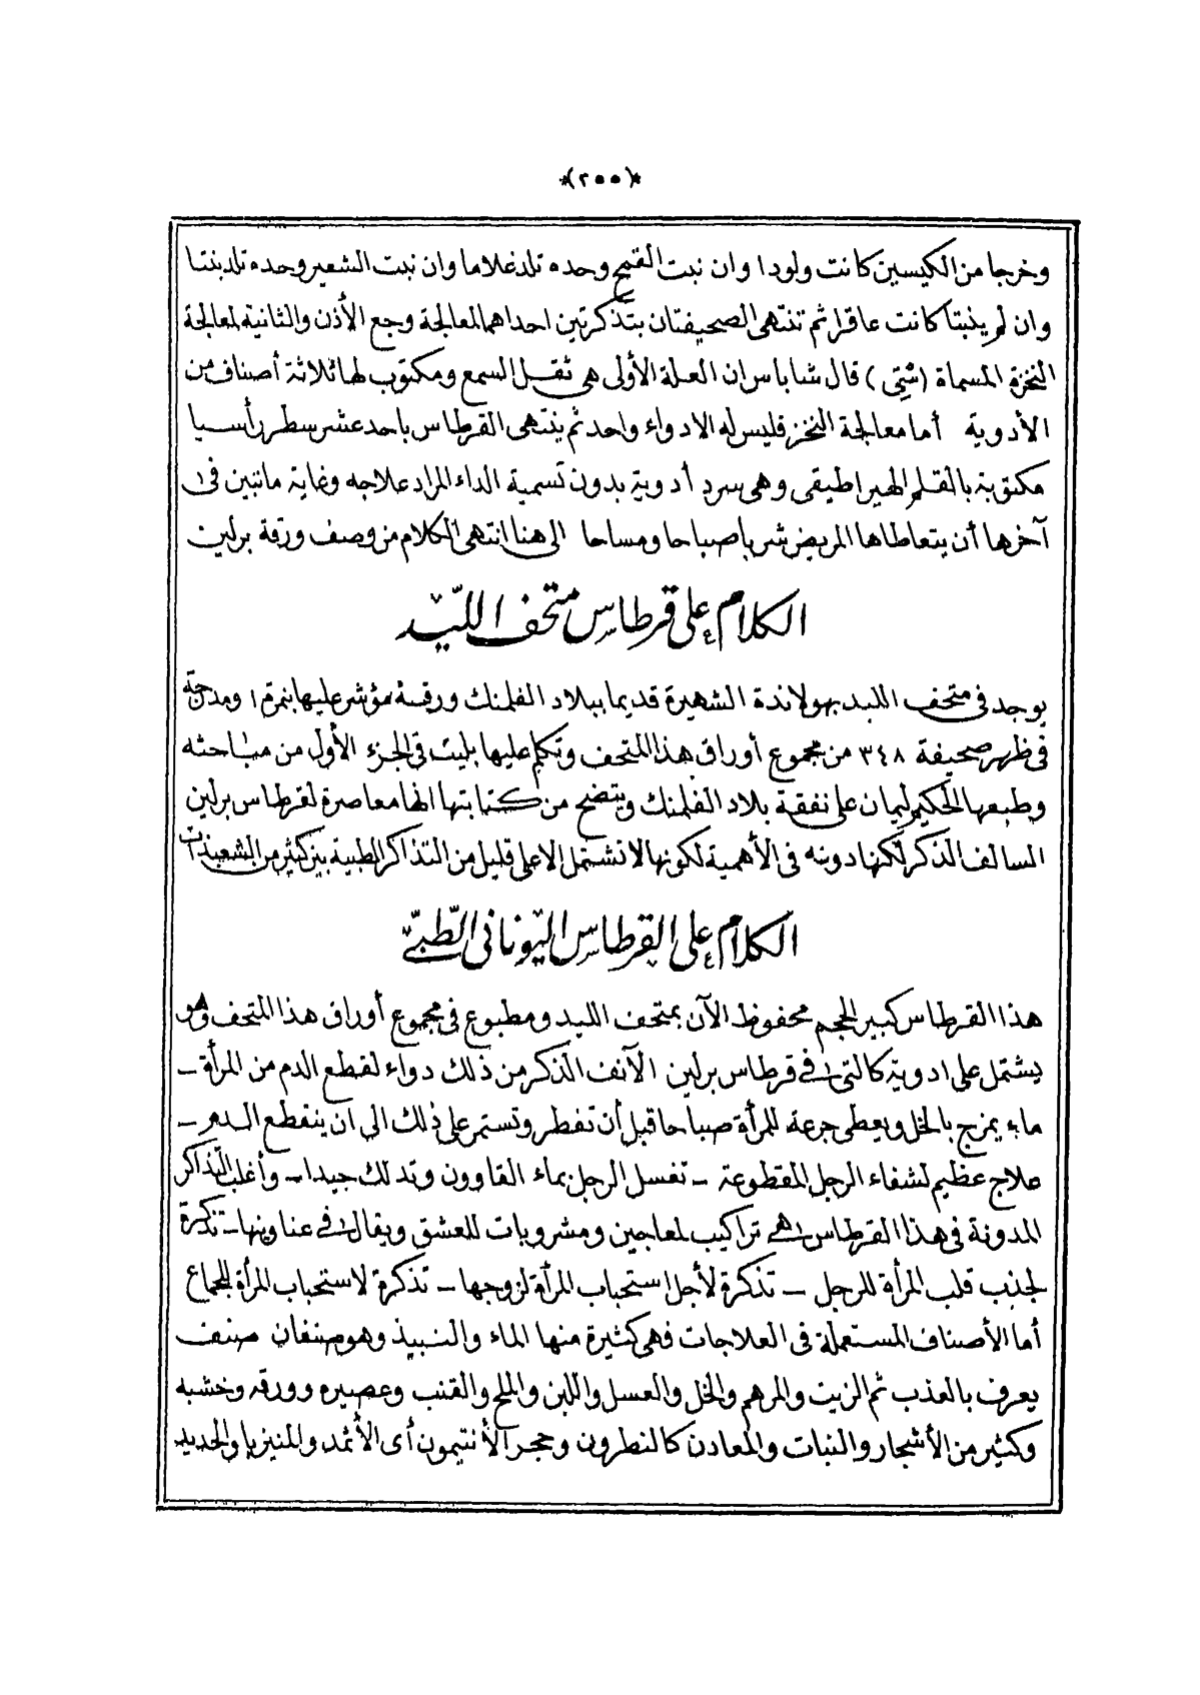 *(٢٠٠)*
وخرجا من الكيسين كانت ولودا وان نبت القمح وحده تلد غلاما وان نبت الشعير وحده تلد بنتا
وان لم ينبتا كانت عاقرا ثم تنتهى الصحيفتان بتذكرتين احداهما لمعالجة وجع الأذن والثانية لمعالجة
النخزة المسماة (شتى) قال شاباس ان العلة الأولى هى ثقل السمع ومكتوب لها ثلاثة أصناف من
الأدوية أما معالجة النخز فليس له الا دواء واحد ثم ينتهى القرطاس باحد عشر سطر رأسيا
مكتوبة بالقلم الهيراطيقى وهى سرد أدوية بدون تسمية الداء المراد علاجه وغاية ما تبين فى
آخرها أن يتعاطاها المريض شربا صباحا ومساحا الى هنا انتهى الكلام من وصف ورقة برلين
الكلام على قرطاس متحف الليد
يوجد فى متحف الليد بهولاندة الشهيرة قديما ببلاد الفلمنك ورقة مؤشر عليها بنمرة ١ ومدرجة
فى ظهر صحيفة ٣٤٨ من مجموع أوراق هذا المتحف وتكلم عليها بليت فى الجزء الأول من مباحثه
وطبعها الحكيم ليمان على نفقة بلاد الفلمنك ويتضح من كتابتها انها معاصرة لقرطاس برلين
السالف الذكر لكنها دونه فى الأهمية لكونها لا تشتمل الا على قليل من التذاكر الطبية بين كثير من الشعبذات
الكلام على القرطاس اليونانى الطبى
هذا القرطاس كبير الحجم محفوظ الآن بمتحف الليد ومطبوع فى مجموع أوراق هذا المتحف وهو
يشتمل على ادوية كالتى فى قرطاس برلين الآنف الذكر من ذلك دواء لقطع الدم من المرأة –
ماء يمزج بالخل ويعطى جرعة للمرأة صباحا قبل أن تفطر وتستمر على ذلك الى ان ينقطع الدم –
علاج عظيم لشفاء الرجل المقطوعة – تغسل الرجل بماء القاوون وتدلك جيدا – وأغلب التذاكر
المدونة فى هذا القرطاس هى تراكيب لمعاجين ومشروبات للعشق ويقال فى عناوينها – تذكرة
لجذب قلب المرأة للرجل – تذكرة لأجل استحباب المرأة لزوجها – تذكرة لاستحباب المرأة للجماع
أما الأصناف المستعملة فى العلاجات فهى كثيرة منها الماء والنبيذ وهو صنفان صنف
يعرف بالعذب ثم الزيت والمرهم والخل والعسل واللبن والملح والقنب وعصيره وورقه وخشبه
وكثير من الأشجار والنبات والمعادن كالنطرون وحجر الأنتيمون أى الأثمد والمنيزيا والحديد